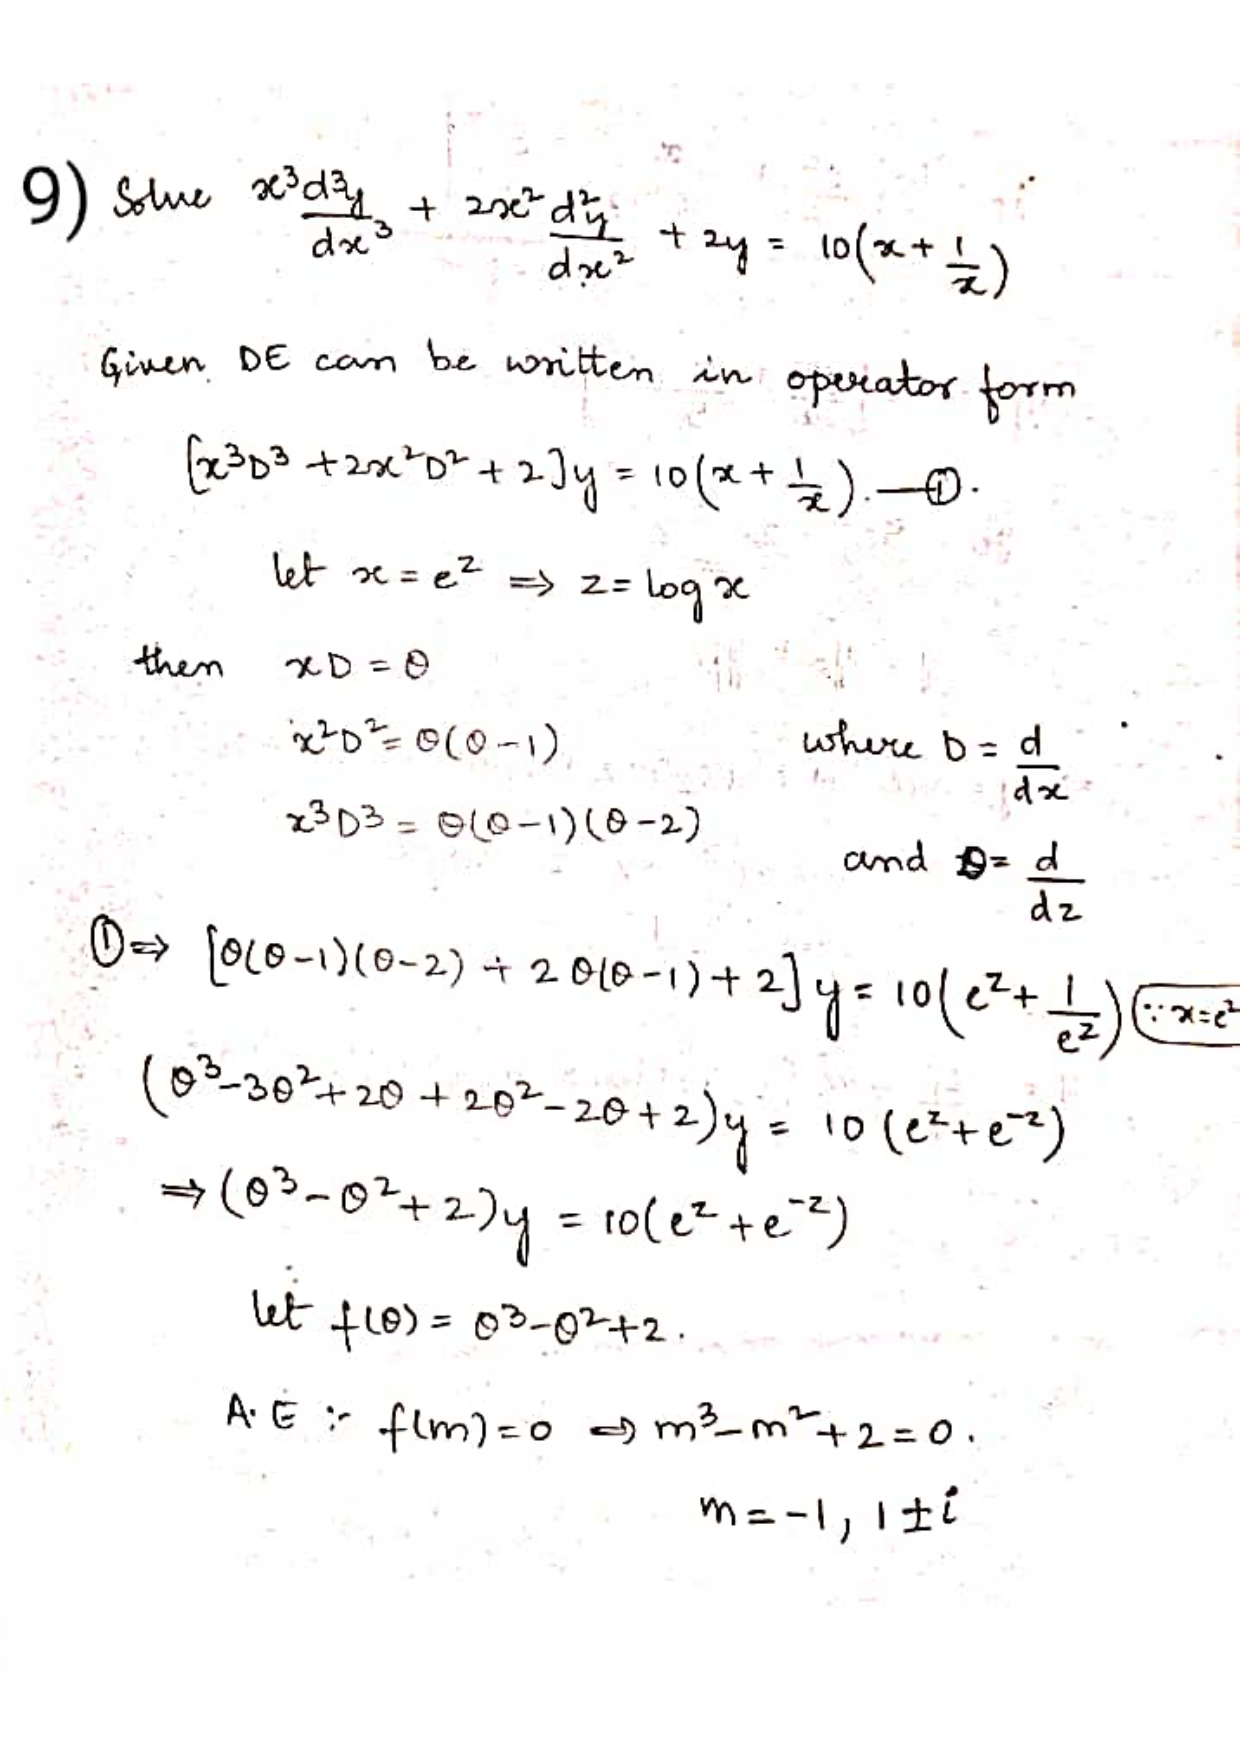 9) Solve x³d³y/dx³ + 2x² d²y/dx² + 2y = 10(x + 1/x)
Given DE can be written in operator form
[x³D³ + 2x²D² + 2]y = 10(x + 1/x). —①.
let x = e^z ⇒ z = log x
then xD = θ
x²D² = θ(θ-1) where D = d/dx
x³D³ = θ(θ-1)(θ-2)
and θ = d/dz
①⇒ [θ(θ-1)(θ-2) + 2θ(θ-1) + 2]y = 10(e^z + 1/e^z) (∵ x = e^z
(θ³-3θ²+2θ + 2θ²-2θ+2)y = 10(e^z+e^-z)
⇒ (θ³-θ²+2)y = 10(e^z+e^-z)
let f(θ) = θ³-θ²+2.
A.E :- f(m)=0 ⇒ m³-m²+2=0.
m = -1, 1±i